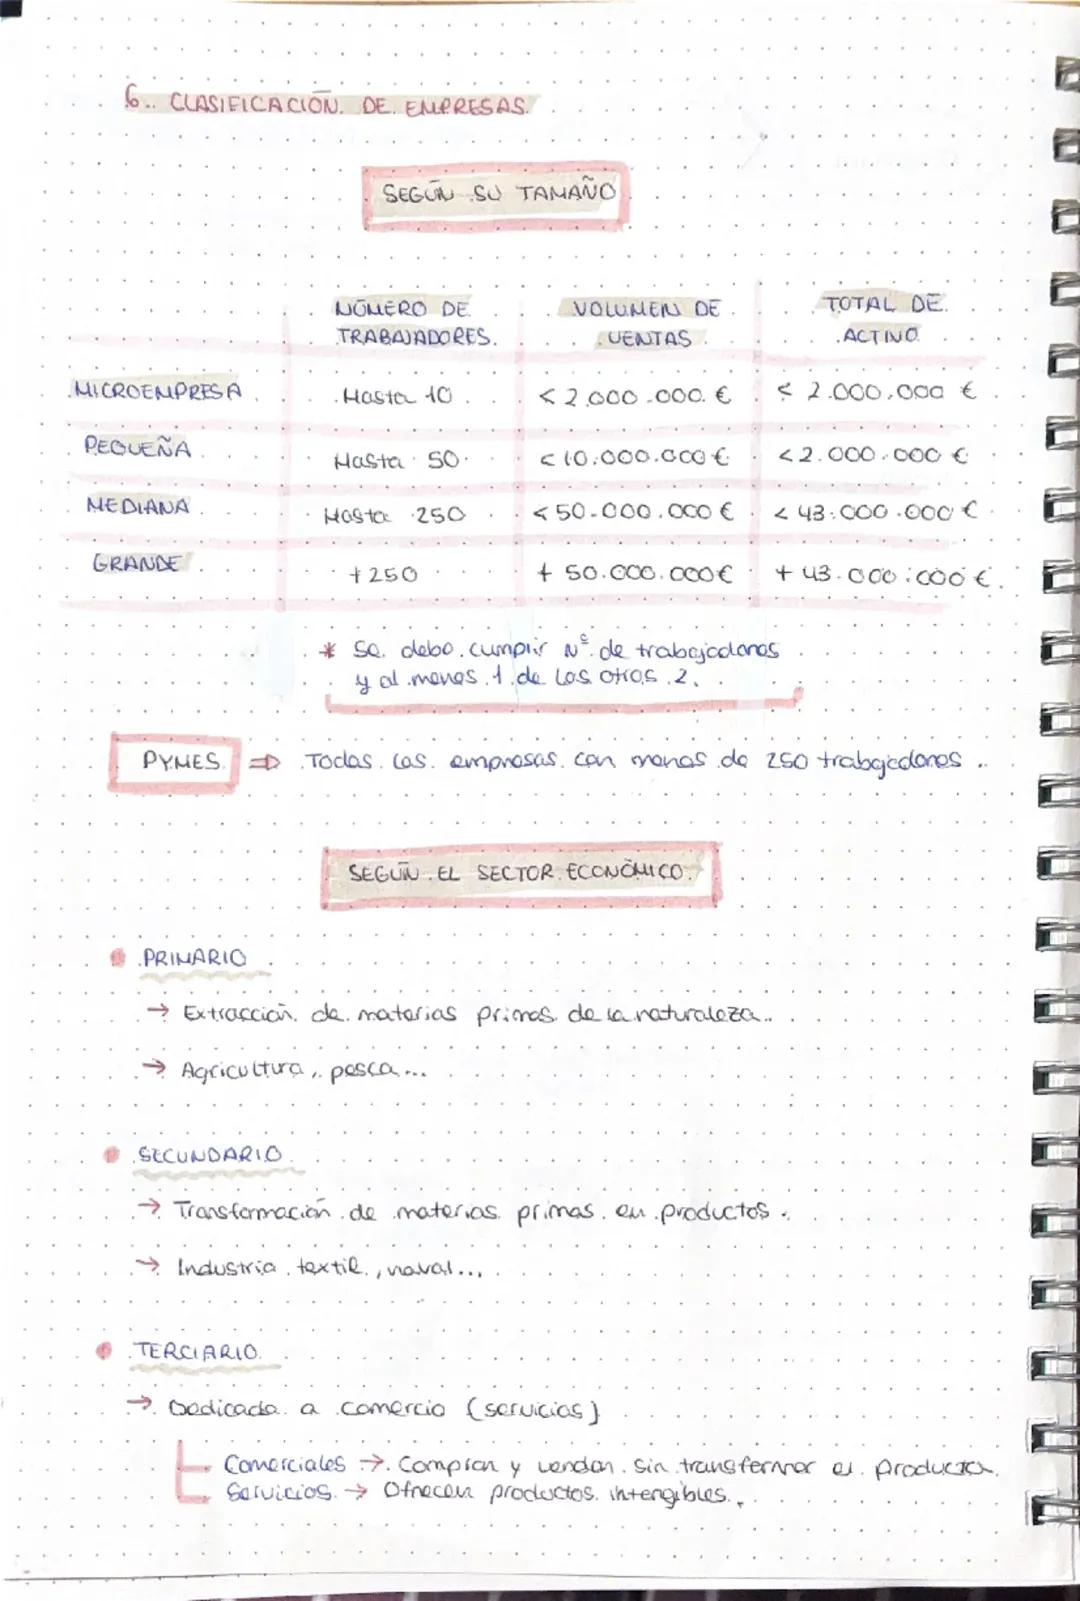 6. CLASIFICACIÓN DE EMPRESAS.
SEGÚN SU TAMAÑO
NÚMERO DE TRABAJADORES.
VOLUMEN DE VENTAS
TOTAL DE ACTIVO.
MICROEMPRESA Hasta 10 < 2.000.000 € < 2.000.000 €
PEQUEÑA Hasta 50 < 10.000.000 € < 2.000.000 €
MEDIANA Hasta 250 < 50.000.000 € < 43.000.000 €
GRANDE + 250 + 50.000.000€ + 43.000.000 €
* Se debe cumplir Nº de trabajadores
y al menos 1 de los otros 2.
PYMES ⇒ Todas las empresas con menos de 250 trabajadores.
SEGÚN EL SECTOR ECONÓMICO.
• PRIMARIO
→ Extracción de materias primas de la naturaleza.
→ Agricultura, pesca...
• SECUNDARIO
→ Transformación de materias primas en productos.
→ Industria textil, naval...
• TERCIARIO
→ Dedicada a comercio (servicios)
Comerciales → Compran y venden sin transformar el producto.
Servicios → Ofrecen productos intengibles.